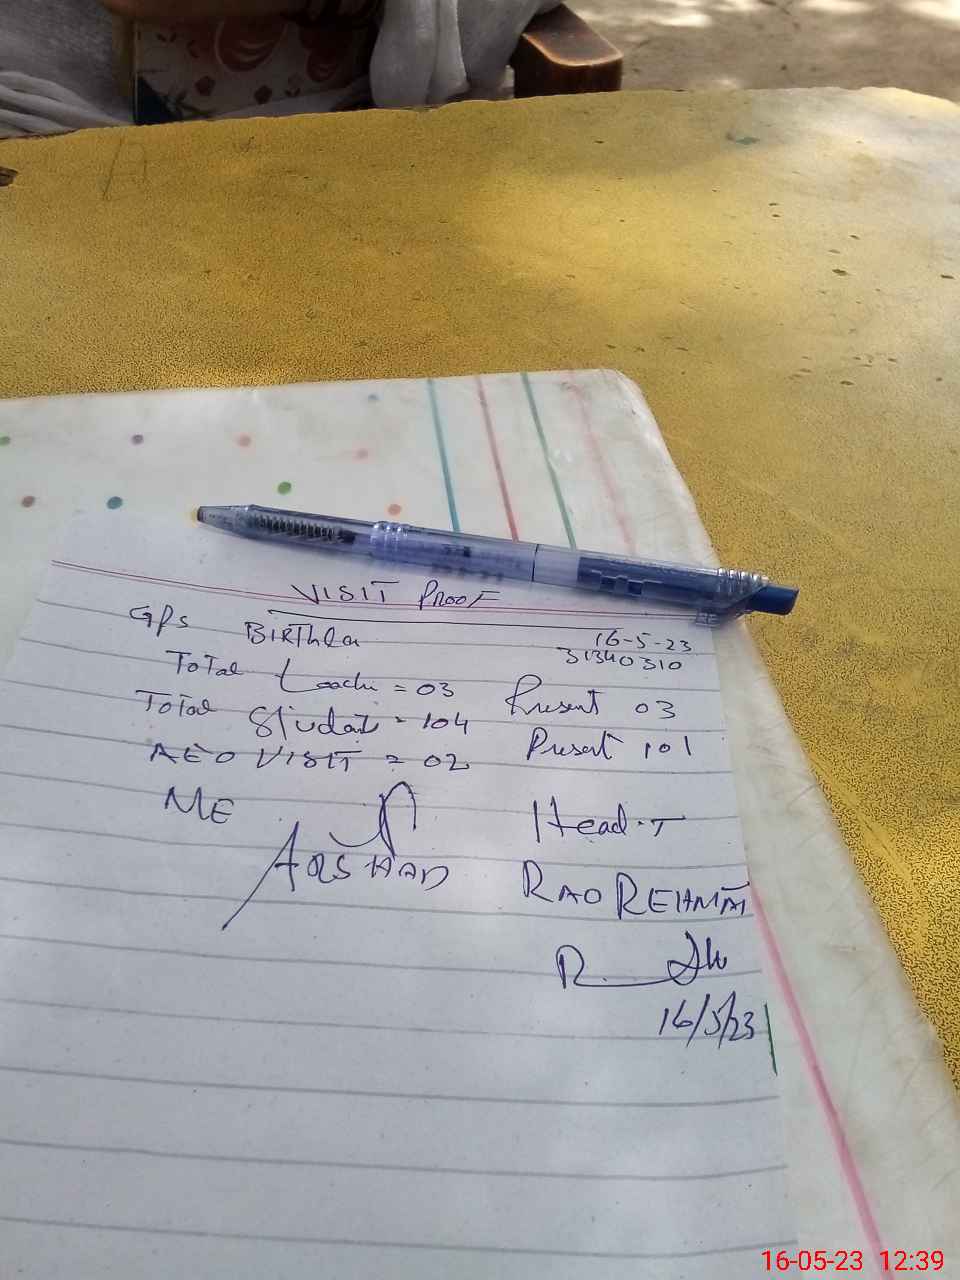 VISIT PROOF
GPS BIRThla 16-5-23
31340310
ToTal = 03 Present 03
Total Student = 104 Present 101
AEO VISIT = 02
ME Head.T
ARSHAD RAO REHMAT
R.
16/5/23
16-05-23 12:39